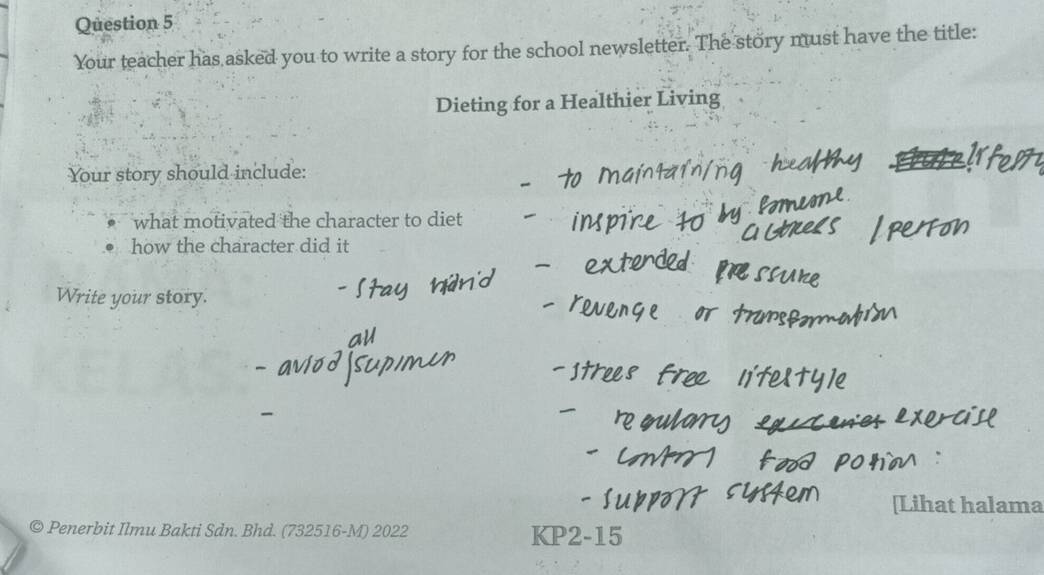 Question 5
Your teacher has asked you to write a story for the school newsletter. The story must have the title:
Dieting for a Healthier Living
Your story should include:
- to maintaining healthy lifesty
• what motivated the character to diet
- inspire to by someone
actrees / person
• how the character did it
- extended pressure
Write your story.
- stay
- revenge or transformation
all
- aviod
- strees free lifestyle
-
- regulary exercise
- control food potion :
- support system
[Lihat halama
© Penerbit Ilmu Bakti Sdn. Bhd. (732516-M) 2022
KP2-15
NAMA:
KELAS: